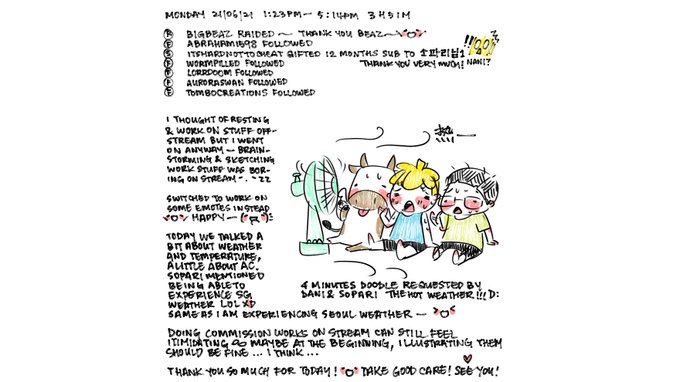 MONDAY 21/06/21 1:23PM — 5:14PM 3H51M
R BIGBEAZ RAIDED ~ THANK YOU BEAZ~
F ABRAHAM1698 FOLLOWED
S ITSHARDNOTTOCHEAT GIFTED 12 MONTHS SUB TO 소파리님1 !!
F WORMPILLED FOLLOWED THANK YOU VERY MUCH! NANI?
F LORRDOOM FOLLOWED
F AURORASWAN FOLLOWED
F TOMBOCREATIONS FOLLOWED
I THOUGHT OF RESTING
& WORK ON STUFF OFF-
STREAM BUT I WENT
ON ANYWAY — BRAIN-
STORMING & SKETCHING
WORK STUFF WAS BOR-
ING ON STREAM -.- ZZ
SWITCHED TO WORK ON
SOME EMOTES INSTEAD
HAPPY —
TODAY WE TALKED A
BIT ABOUT WEATHER
AND TEMPERATURE,
A LITTLE ABOUT AC.
SOPARI MENTIONED
BEING ABLE TO
EXPERIENCE SG
WEATHER LOL XD
SAME AS I AM EXPERIENCING SEOUL WEATHER —
4 MINUTES DOODLE REQUESTED BY
DANI & SOPARI THE HOT WEATHER!!! D:
DOING COMMISSION WORKS ON STREAM CAN STILL FEEL
ITIMIDATING MAYBE AT THE BEGINNING, ILLUSTRATING THEM
SHOULD BE FINE ... I THINK ...
THANK YOU SO MUCH FOR TODAY! TAKE GOOD CARE! SEE YOU!